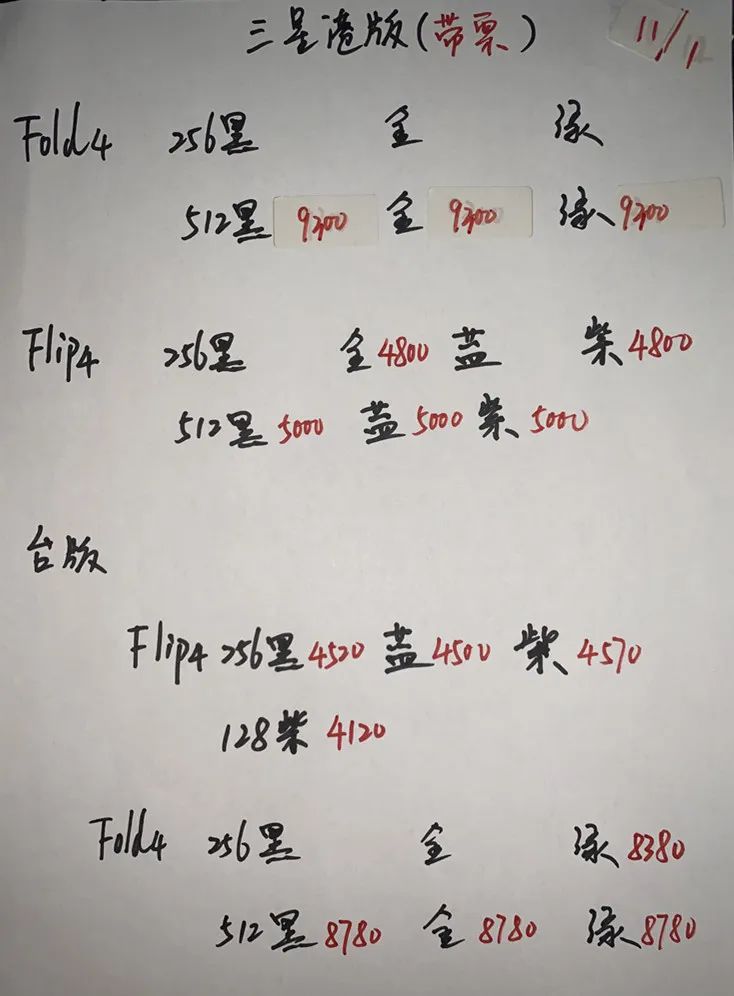 三星港版(带票) 11/1
Fold4 256黑 金 绿
512黑 9300 金 9300 绿 9300
Flip4 256黑 金 4800 蓝 紫 4800
512黑 5000 蓝 5000 紫 5000
台版
Flip4 256黑 4520 蓝 4500 紫 4570
128紫 4120
Fold4 256黑 金 绿 8380
512黑 8780 金 8780 绿 8780